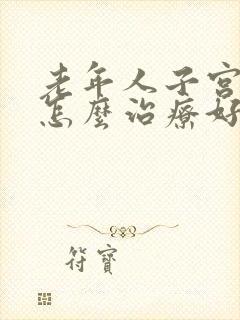 老年人子宫
怎麼治療好
符寶